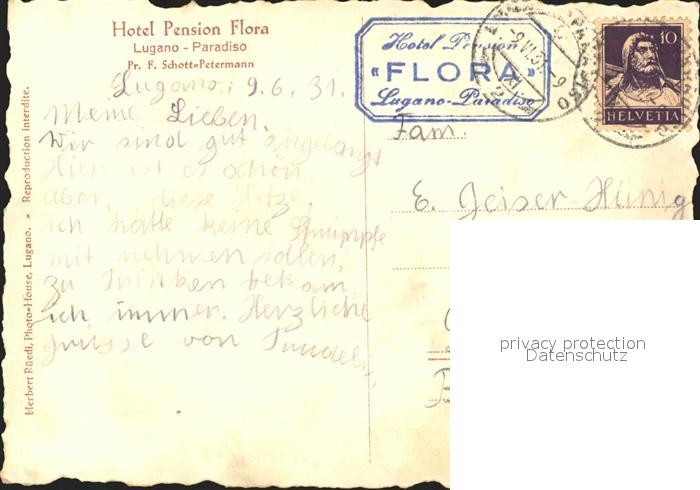 Hotel Pension Flora
Lugano - Paradiso
Pr. F. Schott-Petermann
Lugano, 9.6.31.
Meine Lieben.
Wir sind gut angelangt
Hier ist es schön
aber, diese Hitze,
ich hätte keine Strümpfe
mit nehmen sollen,
zu Trinken bekam
ich immer. Herzliche
Grüsse von
Herbert Rüedi, Photo-House, Lugano. - Reproduction interdite.
Hotel Pension
«FLORA»
Lugano-Paradiso
10
HELVETIA
Fam.
E. Jeiser-Hünig
privacy protection
Datenschutz